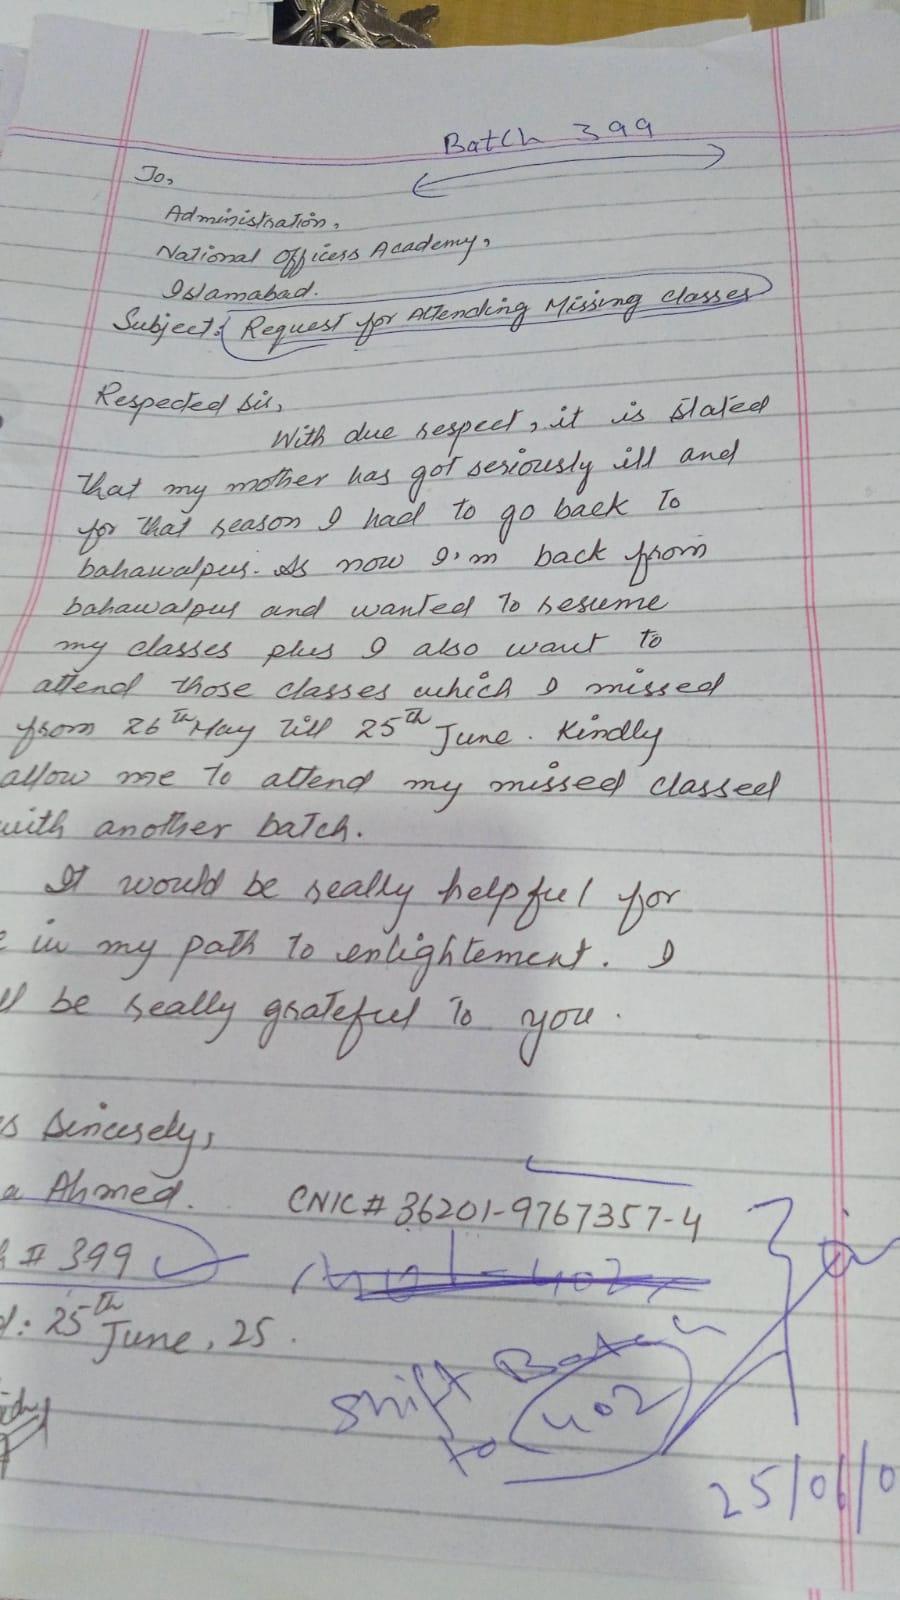 Batch 399
To,
Administration,
National Officers Academy,
Islamabad.
Subject: Request for Attending Missing classes
Respected Sir,
With due respect, it is stated
that my mother has got seriously ill and
for that reason I had to go back to
bahawalpur. As now I'm back from
bahawalpur and wanted to resume
my classes plus I also want to
attend those classes which I missed
from 26th May till 25th June. Kindly
allow me to attend my missed classed
with another batch.
It would be really helpful for
in my path to enlightement. I
be really grateful to you.
Sincerely,
Ahmed. CNIC# 36201-9767357-4
# 399
25th June, 25.
Shift Batch
to 402
25/06/